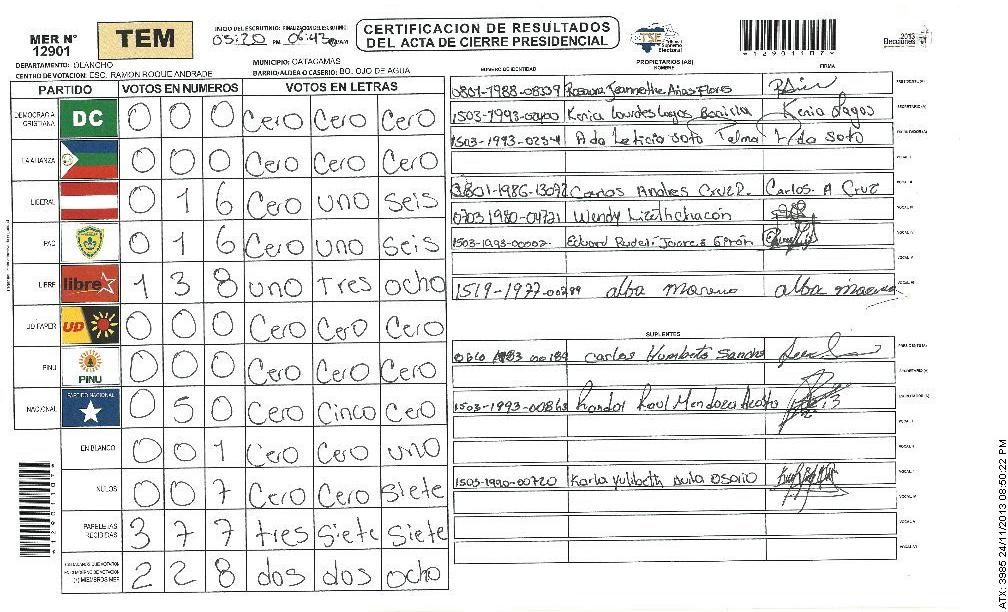 MER N° 12901
TEM
INICIO DEL ESCRUTINIO: FINALIZACION DEL ESCRUTINIO:
05:20 PM 06:43
CERTIFICACION DE RESULTADOS
DEL ACTA DE CIERRE PRESIDENCIAL
TSE Tribunal Supremo Electoral
12901107
2013 Elecciones
DEPARTAMENTO: OLANCHO
MUNICIPIO: CATACAMAS
CENTRO DE VOTACION: ESC. RAMON ROQUE ANDRADE
BARRIO/ALDEA O CASERIO: BO. OJO DE AGUA
PARTIDO VOTOS EN NUMEROS VOTOS EN LETRAS
DEMOCRATA CRISTIANA DC 0 0 0 Cero Cero Cero
LA ALIANZA 0 0 0 Cero Cero Cero
LIBERAL 0 1 6 Cero uno seis
PAC 0 1 6 Cero uno seis
LIBRE libre 1 3 8 uno Tres ocho
UD FAPER UD 0 0 0 Cero Cero Cero
PINU PINU 0 0 0 Cero Cero Cero
NACIONAL PARTIDO NACIONAL 0 5 0 Cero Cinco Cero
EN BLANCO 0 0 1 Cero Cero uno
NULOS 0 0 7 Cero Cero Siete
PAPELETAS RECIBIDAS 3 7 7 tres Siete Siete
2 2 8 dos dos ocho
NUMERO DE IDENTIDAD PROPIETARIOS (AS) NOMBRE FIRMA
0801-1988-08339 Rosaura Jeannethe Arias Flores
1503-1993-02400 Kenia Lourdes Lagos Bonilla Kenia Lagos
1503-1993-02341 Ada Leticia Soto
0801-1986-13092 Carlos Andres Cruz R. Carlos A Cruz
0703 1980-04721 Wendy Lizeth chacón
1503-1993-00002
1519-1977-00289 alba moreno alba
SUPLENTES
Carlos Humberto
1503-1993-00863 Raul Mendoza Acosta
1503-1990-00720 Karla Yulibeth avila osorio
12901107
ATX: 3985 24/11/2013 08:50:22 PM